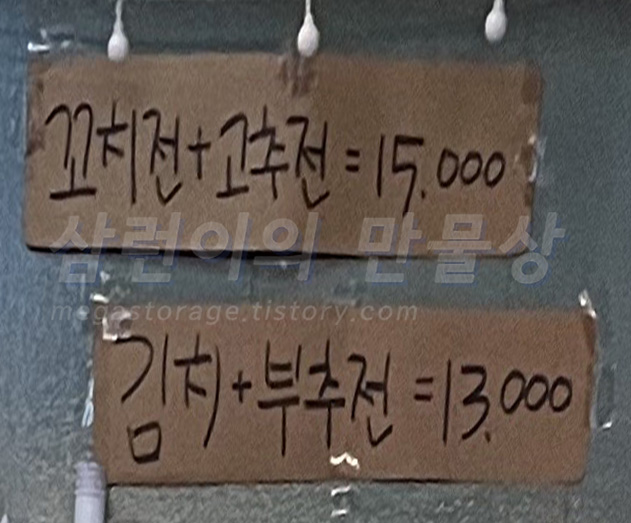 꼬치전+고추전=15.000
삼런이의 만물상
megastorage.tistory.com
김치+부추전=13.000